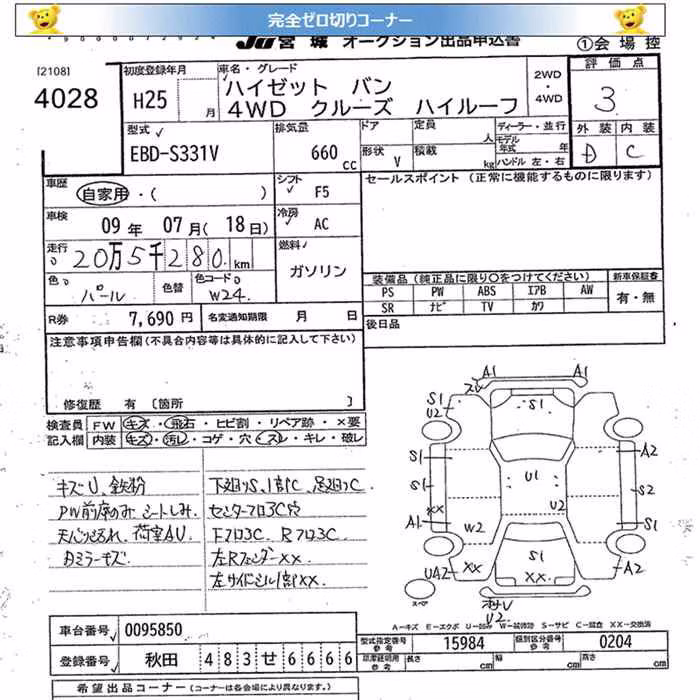 完全ゼロ切りコーナー
JU宮城 オークション出品申込書 ①会場控
[2108]
4028
初度登録年月 H25 月
車名・グレード
ハイゼット バン
4WD クルーズ ハイルーフ
2WD ・ 4WD
評価点
3
外装 内装
D C
型式 EBD-S331V
排気量 660 cc
ドア
形状 V
定員 人
積載 kg
ディーラー・並行
モデル年式 年
ハンドル 左・右
車歴 自家用・( )
シフト F5
セールスポイント (正常に機能するものに限ります)
車検 09年 07月(18日)
冷房 AC
走行 20万5千280km
燃料 ガソリン
色 パール 色替 色コード W24
装備品 (純正品に限り○をつけてください) 新車保証書
PS PW ABS エアB AW 有・無
SR ナビ TV カワ
R券 7,690円 名変通知期限 月 日
後日品
注意事項申告欄(不具合内容等は具体的に記入して下さい)
修復歴 有 〔箇所 〕
検査員 FW キズ・飛石・ヒビ割・リペア跡・×要
記入欄 内装 キズ・汚レ・コゲ・穴・スレ・キレ・破レ
キズU、鉄粉
PW前席のみ シートしみ
荷室AU
Dミラーキズ
下廻りS、1部PC、足廻りC
センターフロ3C穴
Fフロ3C、Rフロ3C
左Rフェンダー××
左サイドシル1部××
A1 A1
S1 S1
U2
S1 A2
S1 U1 S2
U2
A1 ×× S1
W2
UA2 ×× S1 A2
××
スペア
U2
A-キズ E-エクボ U-凹み W-補修跡 S-サビ C-腐食 XX-交換済
車台番号 0095850
型式指定番号 参考 15984 類別区分番号 参考 0204
登録番号 秋田 483 せ 6666
長さ cm 幅 cm 高さ cm
希望出品コーナー (コーナーは各会場により異なります。)